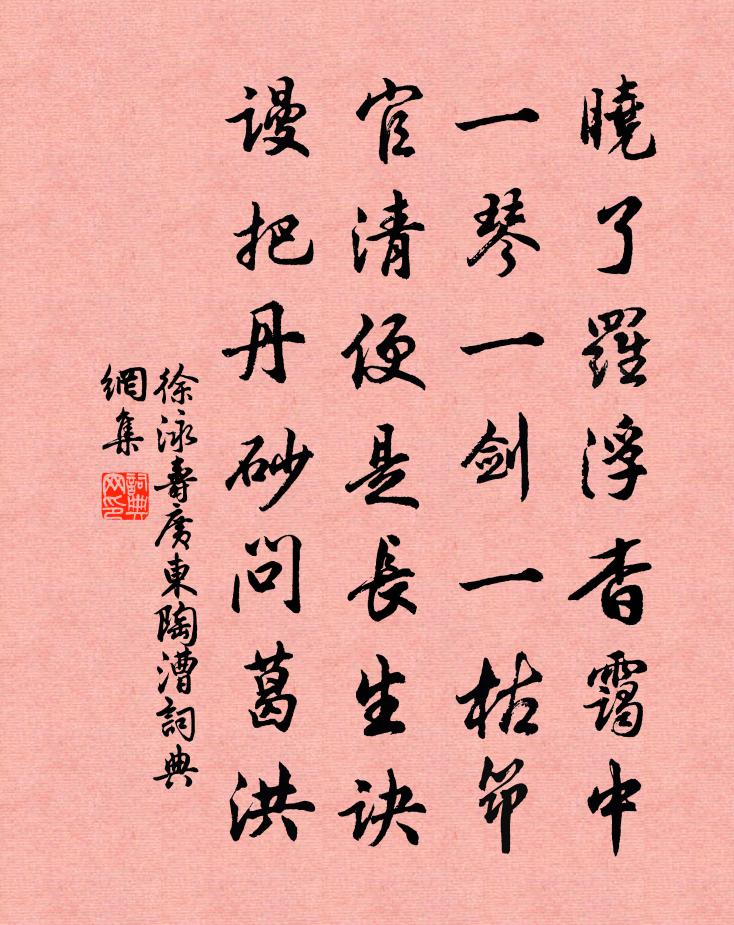 曉了羅浮杳靄中
一琴一劍一枯筇
官清便是長生訣
謾把丹砂問葛洪
徐泳壽廣東陶漕詞典
網集
詞典網印